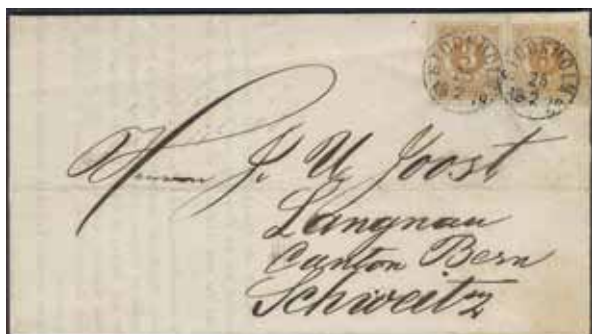 STOCKHOLM STOCKHOLM
3 3
Herrn J. U. Joost
Langnau
Canton Bern
Schweitz